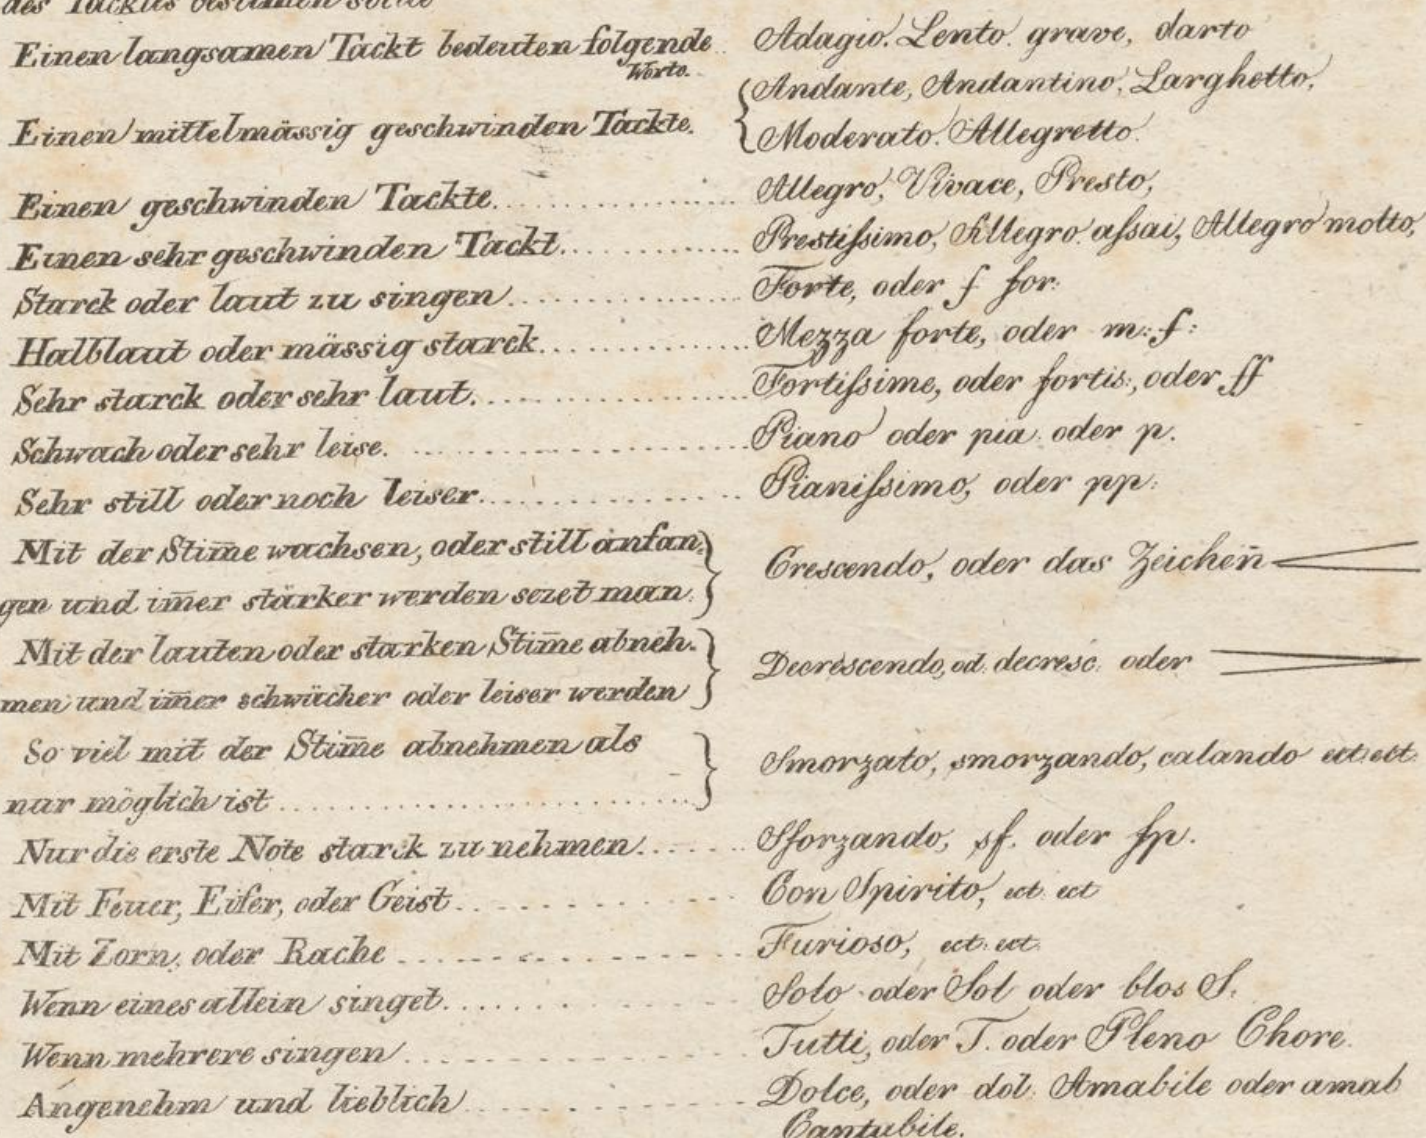 des Tacktes bestimen sollte
Einen langsamen Tackt bedeuten folgende Adagio. Lento. grave, darto
Worte.
Andante, Andantino, Larghetto,
Einen mittelmässig geschwinden Tackte. Moderato. Allegretto.
Einen geschwinden Tackte. Allegro, Vivace, Presto,
Einen sehr geschwinden Tackt. Prestiſsimo, Allegro aſsai, Allegro molto,
Starck oder laut zu singen Forte, oder f for:
Halblaut oder mässig starck. Mezza forte, oder m: f:
Sehr starck oder sehr laut. Fortiſsime, oder fortis:, oder ff
Schwach oder sehr leise. Piano oder pia: oder p.
Sehr still oder noch leiser. Pianiſsimo, oder pp:
Mit der Stim̅e wachsen, oder still anfan-
Crescendo, oder das Zeichen̄
gen und im̅er stärker werden sezet man
Mit der lauten oder starken Stim̅e abneh-
Decrescendo, od. decresc: oder
men und im̅er schwächer oder leiser werden
So viel mit der Stim̅e abnehmen als
Smorzato, smorzando, calando ect: ect:
nur möglich ist
Nur die erste Note starck zu nehmen. Sforzando, sf. oder fp.
Mit Feuer, Eifer, oder Geist. Con Spirito, ect: ect
Mit Zorn, oder Rache Furioso, ect: ect:
Wenn eines allein singet. Solo oder Sol oder blos S.
Wenn mehrere singen Tutti, oder T. oder Pleno Chore.
Angenehm und lieblich Dolce, oder dol: Amabile oder amab
Cantabile.